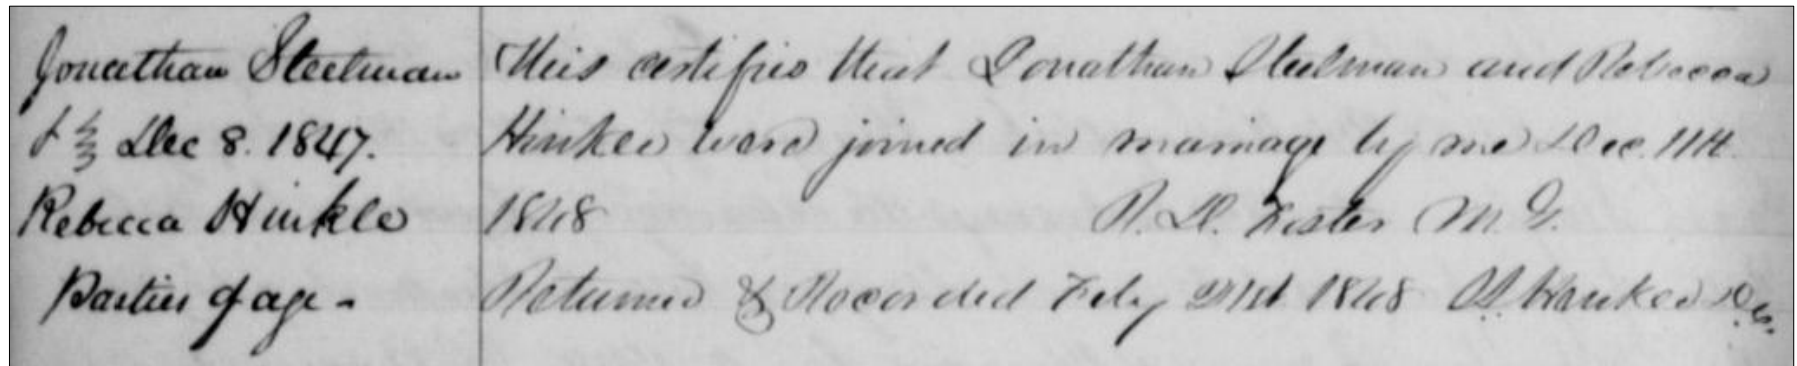 Jonathan Steelman
& Dec 8. 1847.
Rebecca Hinkle
Parties of age -
This certifies that Jonathan Steelman and Rebecca
Hinkle were joined in marriage by me Dec. 11th
1848 R. D. Fester M. G.
Returned & Recorded Feby 21st 1848